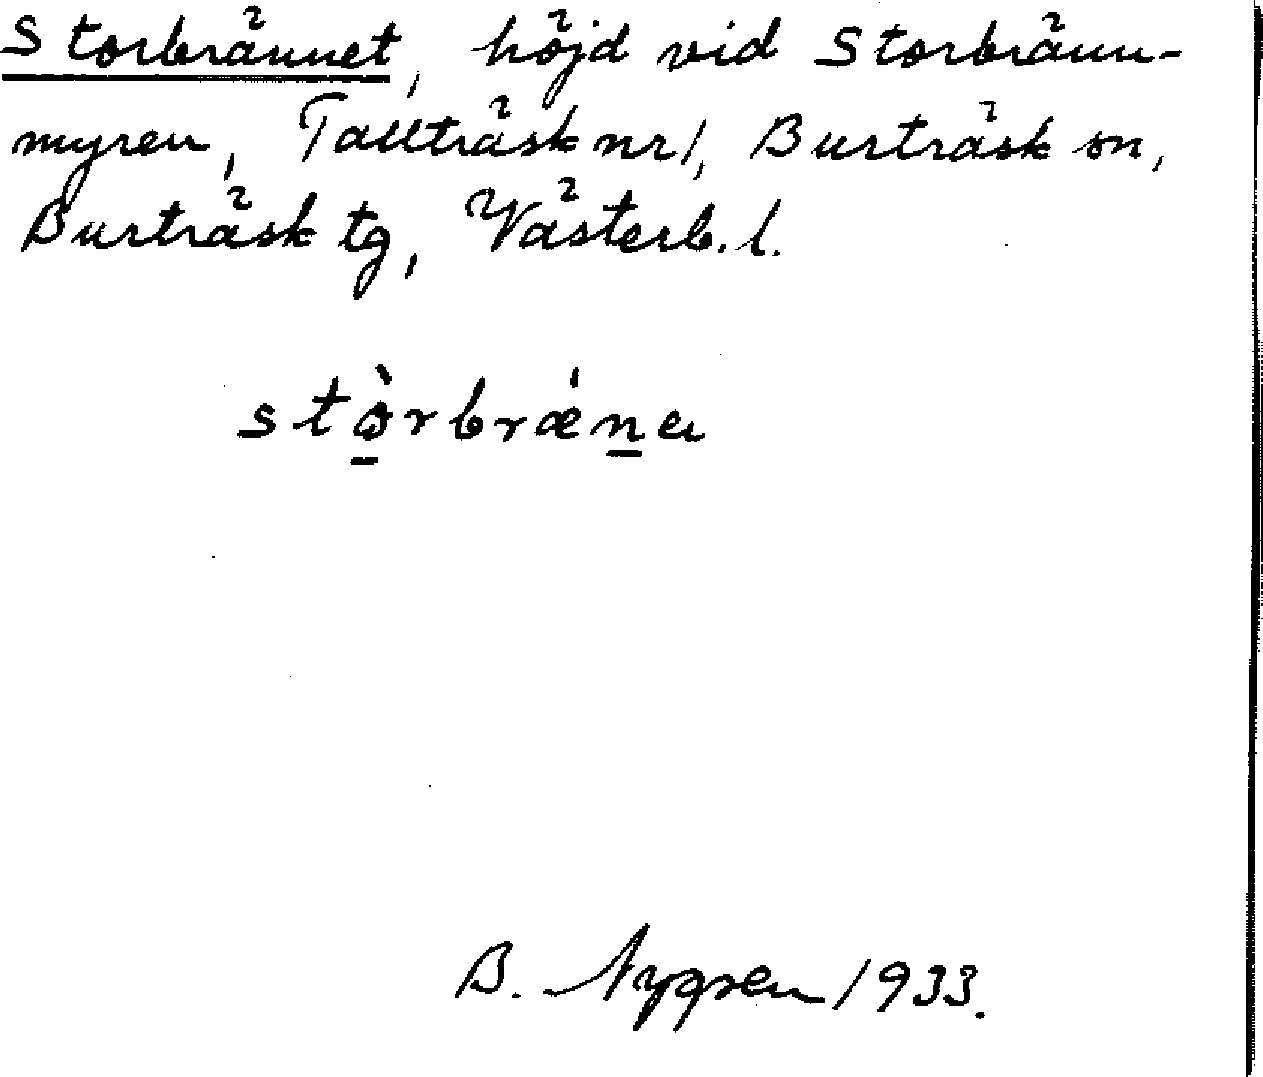 Storbrännet, höjd vid Storbränn-
myren, Tallträsk nr 1, Burträsk sn,
Burträsk tg, Västerb. l.
stò̱rbrǽṉa
B. Nygren 1933.